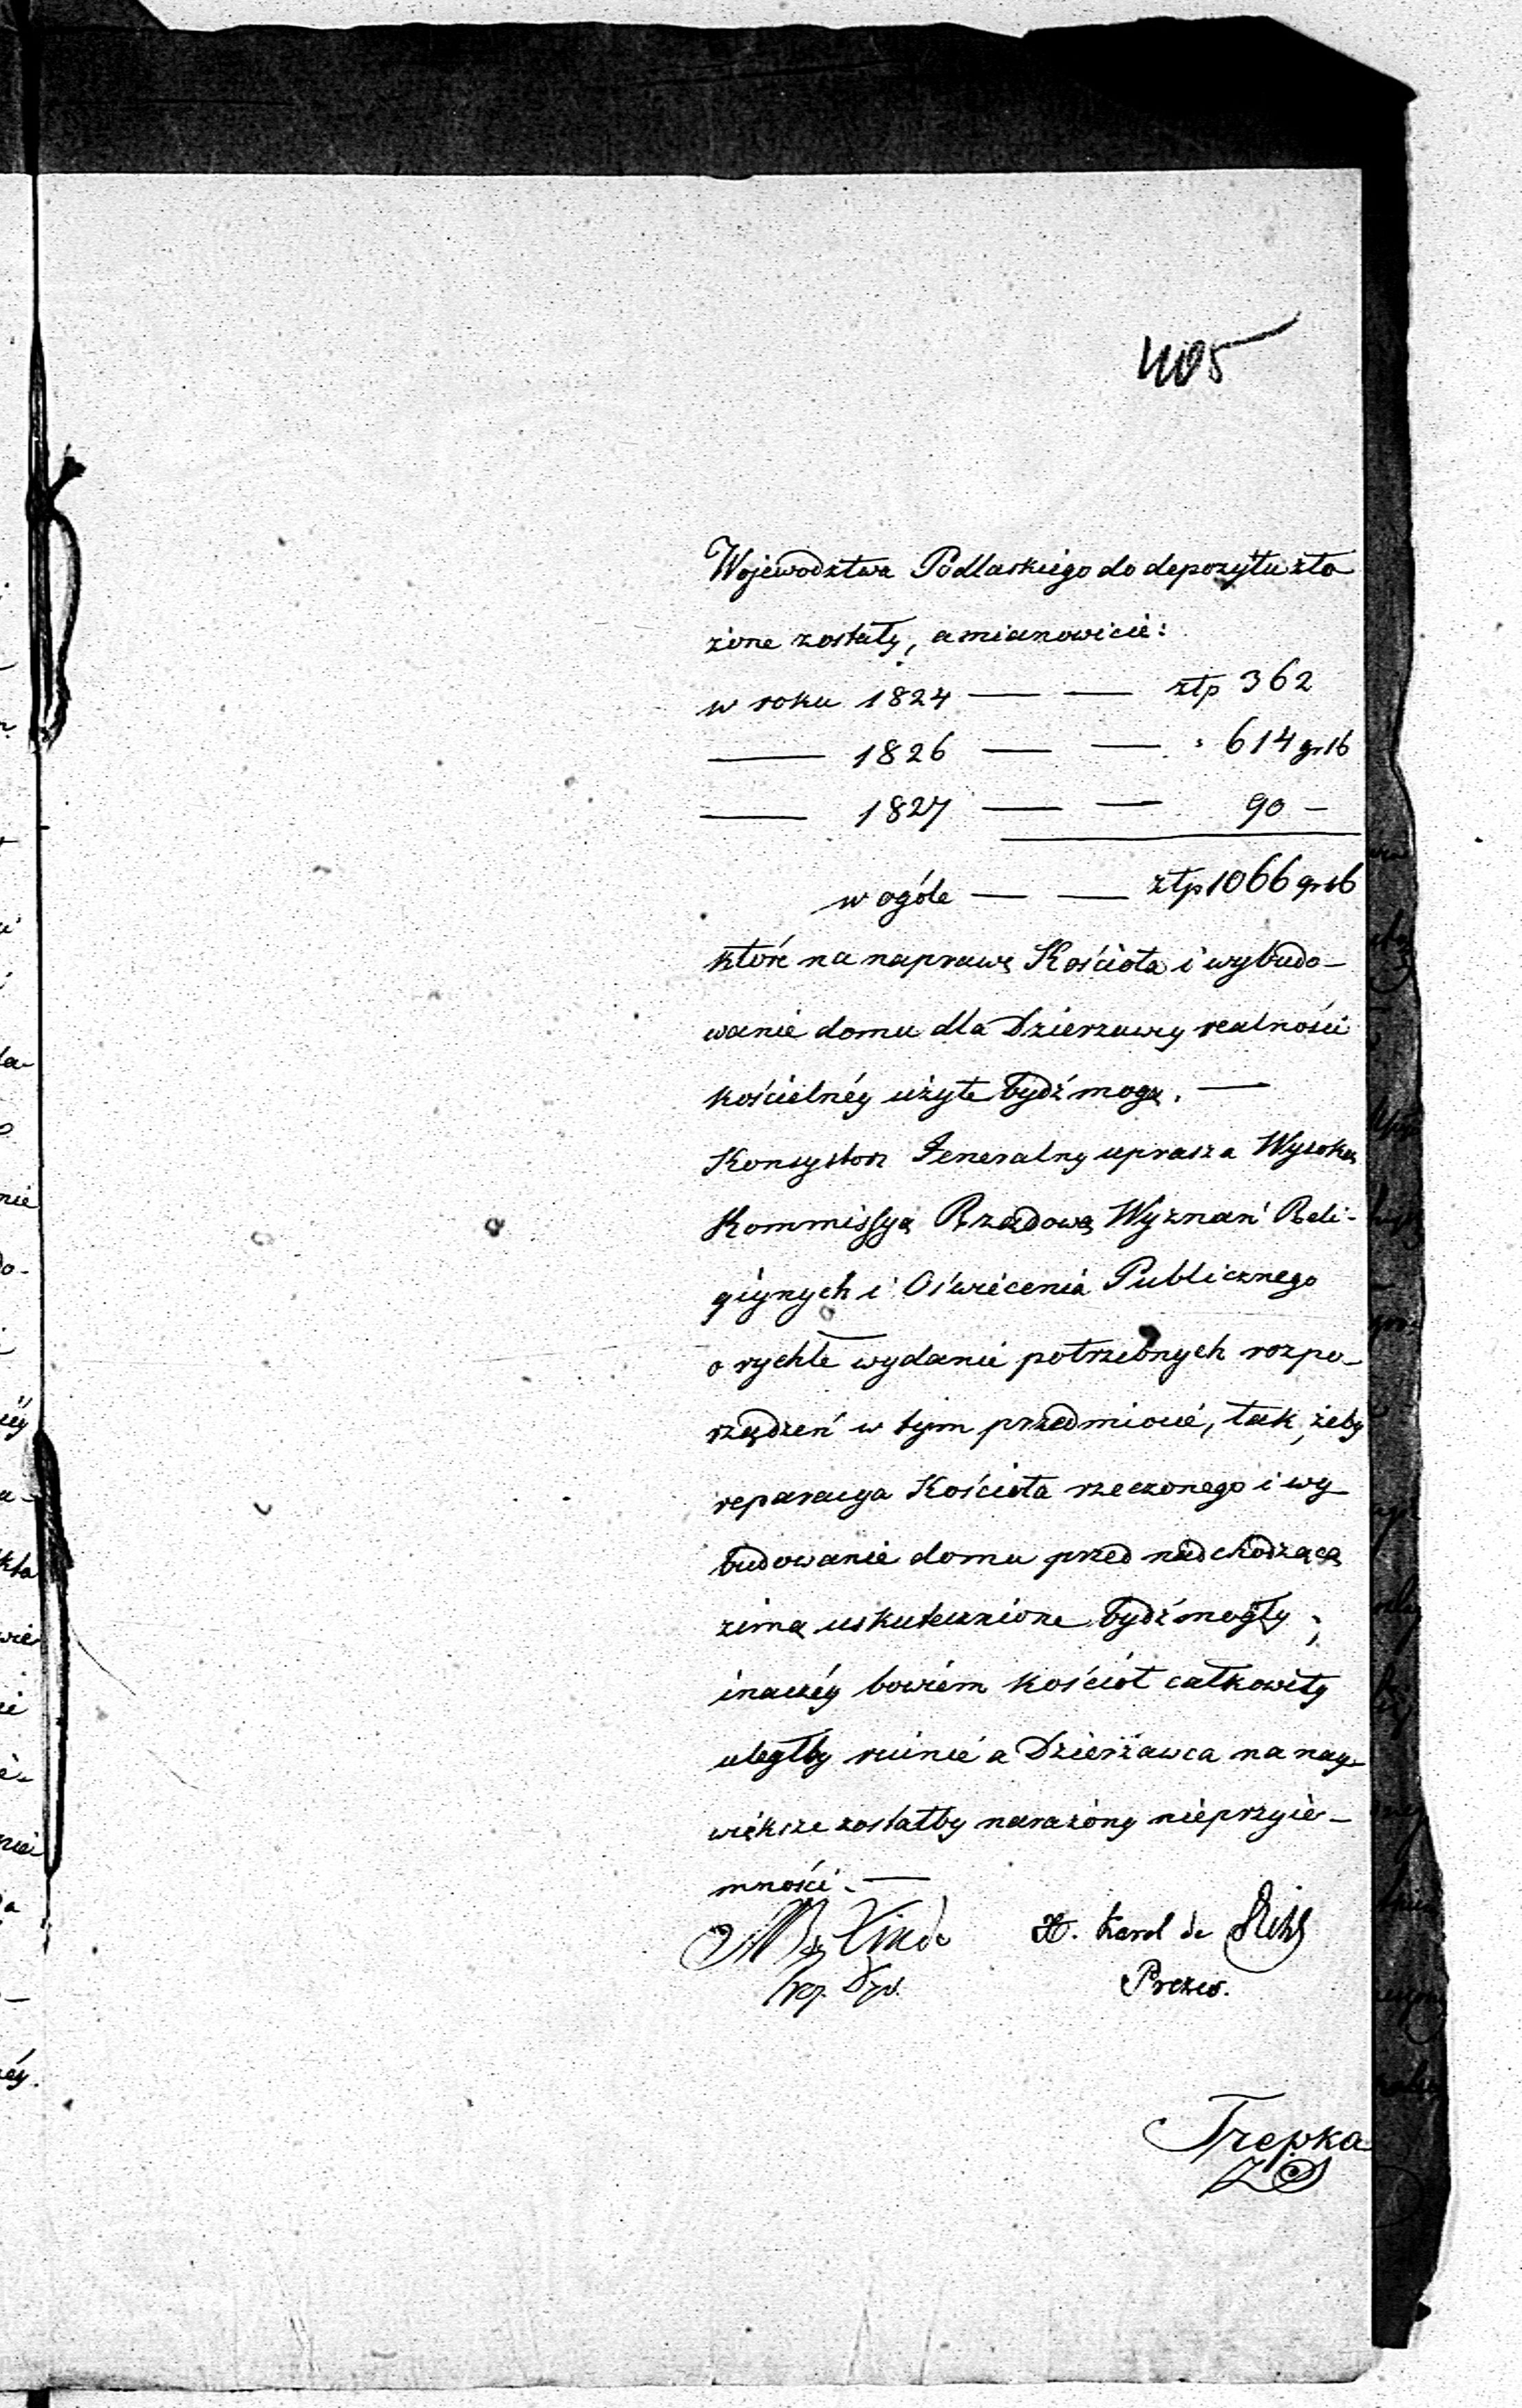 405
Wojewodztwa Podlaskiego do depozytu zło
żone zostały, a mianowicie:
w roku 1824 — — złp 362
— 1826 — — " 614 gr 16
— 1827 — — 90 —
w ogóle — — złp 1066 gr 16
które na naprawę Kościoła i wybudo-
wanie domu dla Dzierzawcy realności
kościelnéy użyte bydź mogą. —
Konsystorz Jeneralny uprasza Wysoką
Kommissyą Rządową Wyznań Reli-
giynych i Oświecenia Publicznego
o rychłe wydanie potrzebnych rozpo-
rządzeń w tym przedmiocie, tak, żeby
reparacya Kościoła rzeczonego i wy
budowanie domu przed nadchodzącą
zimą uskutecznione bydź mogły;
inaczéy bowiem kościół całkowity
uległby ruinie a Dzierżawca na nay-
większe zostałby narażony nieprzyie-
mności. —
Linde
Karol de
Prezes.
Trepka